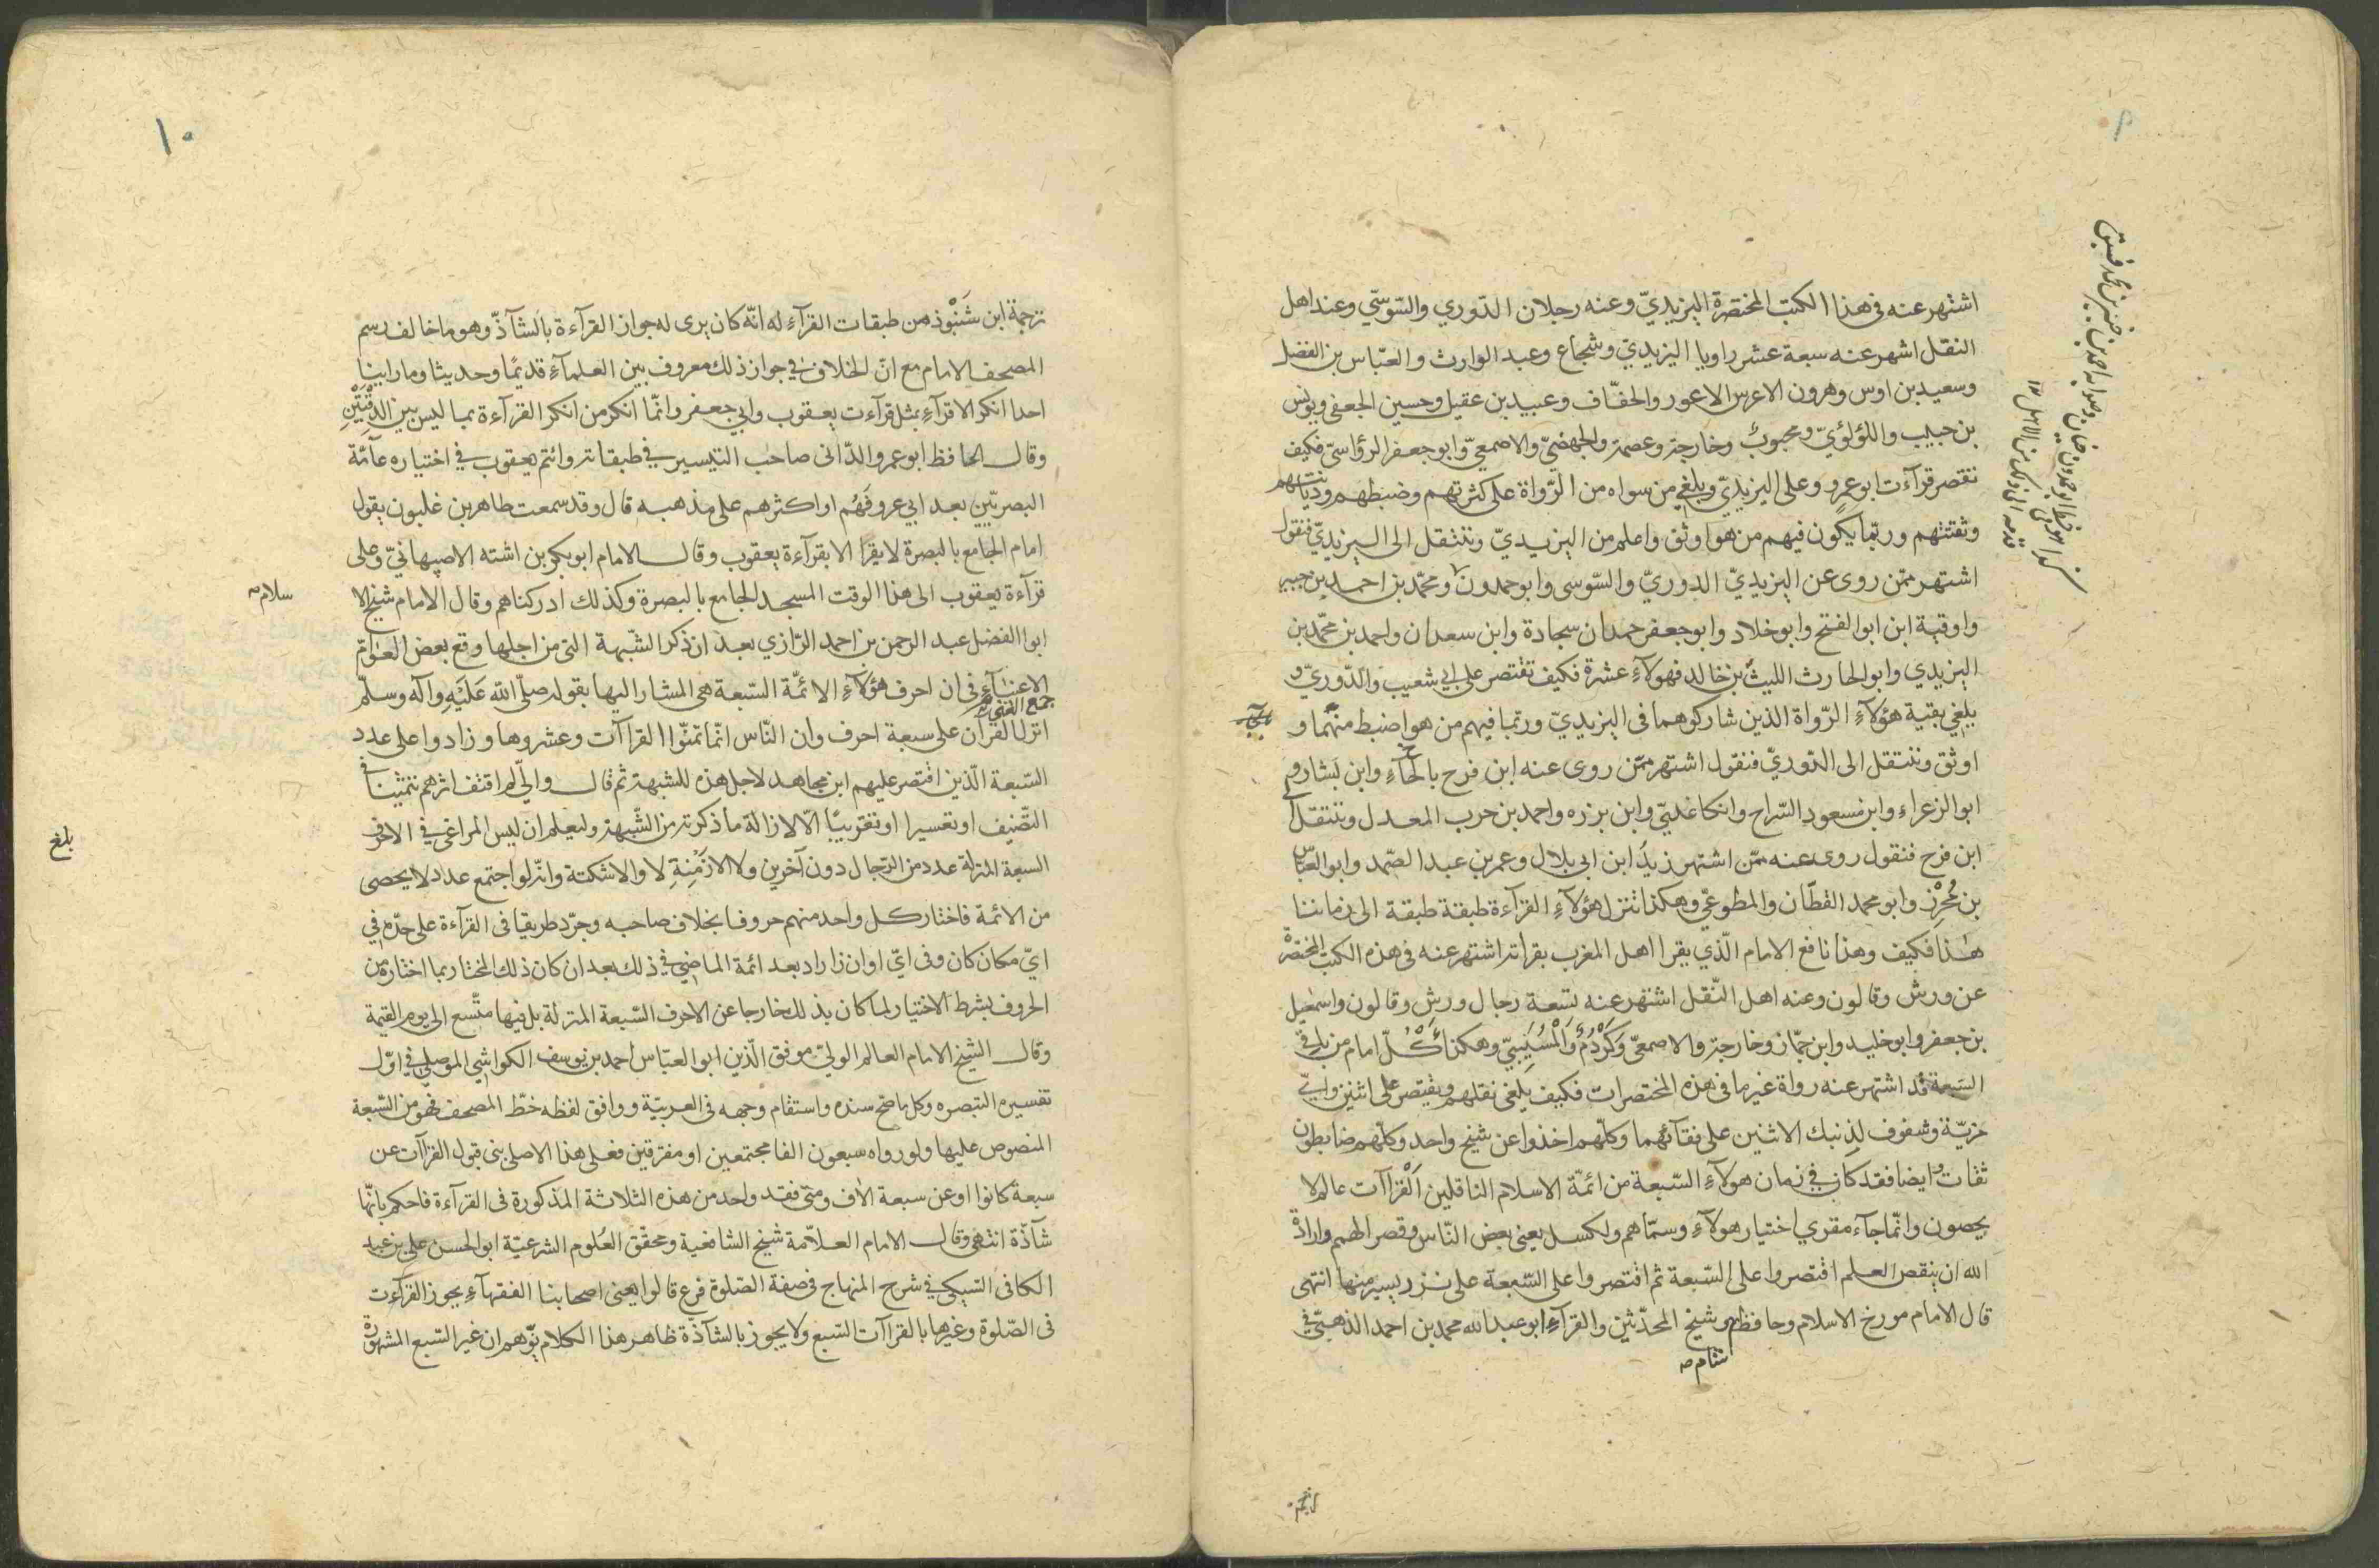 اشتهر عنه فى هذا الكتب المختصرة اليزيديّ وعنه رجلان الدّوري والسّوسيّ وعند اهل
النقل اشهر عنه سبعة عشر راويا اليزيديّ وشجاع وعبد الوارث والعبّاس بن الفضل
وسعيد بن اوس وهرون الاعرس الاعور والخفّاف وعبيد بن عقيل وحسين الجعفي ويونس
بن حبيب واللؤلؤيّ ومحبوب وخارجة وعصمة والجهضميّ والاصمعيّ وابو جعفر الرؤاسيّ فكيف
نقصر قرآءت ابو عمرو وعلى اليزيديّ ويلغي من سواه من الرّواة على كثرتهم وضبطهم وديانتهم
وثقتهم وربّما يكون فيهم من هو اوثق واعلم من اليزيديّ وننتقل الى اليزيديّ فنقول
اشتهر ممّن روى عن اليزيديّ الدوريّ والسّوسى وابو حمدون ومحمّد بن احمد بن جبير
واوقية ابن ابو الفتح وابو خلاد وابو جعفر حمدان سجادة وابن سعدان واحمد بن محمّد بن
اليزيدي وابو الحارث الليث بن خالد فهولآء عشرة فكيف تقتصر على ابي شعيب والدّوريّ و
يلغي بقية هؤلآء الرّواة الذين شاركوهما فى اليزيديّ وربّما فيهم من هو اضبط منهما و
اوثق وننتقل الى الدّوريّ فنقول اشتهر ممّن روى عنه ابن فرح بالحآء وابن بشار و
ابو الزعراء وابن مسعود السّراج وانكاغليّ وابن برزه واحمد بن حرب المعدل وننتقل
ابن فرح فنقول روى عنه ممّن اشتهر زيد ابن ابى بلال وعمر بن عبد الصّمد وابو العبّاس
بن محرز وابو محمد القطّان والمطوعيّ وهكذا ننزل هؤلآء القرآءة طبقة طبقة الى زماننا
هذا فكيف وهذا نافع الامام الّذي يقرا اهل المغرب بقراته اشتهر عنه فى هذه الكتب المختصرة
عن ورش وقالون وعنه اهل النّقل اشتهر عنه تسعة رجال ورش وقالون واسمعيل
بن جعفر وابو خليد وابن جمّاز وخارجة والاصمعىّ وكردم والمسيبيّ وهكذا كلّ امام من باقى
السبعة قد اشتهر عنه رواة غير ما فى هذه المختصرات فكيف يلغى نقلهم ويقتصر على اثنين وايّ
مزيّة وشفوف لذنبك الاثنين على رفقآئهما وكلّهم اخذوا عن شيخ واحد وكلّهم ضابطون
ثقات وايضا فقد كان في زمان هولآء السّبعة من ائمّة الاسلام الناقلين القرآآت عالم لا
يحصون وانّما جآء مقري اختيار هولآء وسمّاهم ولكسل يعنى بعض النّاس وقصر الهمم وارادة
الله ان ينقص العلم اقتصروا على السّبعة ثم اقتصروا على السّبعة على نزر يسير منها انتهى
قال الامام مورخ الاسلام وحافظ وشيخ المحدّثين والقرآء ابو عبد الله محمد بن احمد الذهبيّ في
شام ص
١٠
ترجمة ابن شنبوذ من طبقات القرآء له انّه كان يرى له جواز القرآءة بالشآذّ وهو ما خالف رسم
المصحف الامام مع انّ الخلاف في جواز ذلك معروف بين العلمآء قديمًا وحديثا وما راينا
احدا انكر الاقرآء بمثل قرآءت يعقوب وابي جعفر وانّما انكر من انكر القرآءة بما ليس بين الدفتين
وقال الحافظ ابو عمرو الدّانى صاحب التيسير في طبقاته وائتم بيعقوب في اختياره عآمّة
البصريّين بعد ابي عرو فهم او اكثرهم على مذهبه قال وقد سمعت طاهر بن غلبون يقول
امام الجامع بالبصرة لا يقرا الا بقرآءة يعقوب وقال الامام ابو بكر بن اشته الاصبهانيّ وعلى
قرآءة يعقوب الى هذا الوقت المسجد الجامع بالبصرة وكذلك ادركناهم وقال الامام شيخ الا
سلام ص
ابوا الفضل عبد الرحمن بن احمد الرّازي بعد ان ذكر الشّبهة التى من اجلها وقع بعض العوامّ
الاغنيآء فى ان احرف هؤلآء الائمّة السّبعة هى المشار اليها بقوله صلّى الله عليه وآله وسلّم
انزل القرآن على سبعة احرف وان النّاس انّما تمنّوا القراآت وعشروها وزادوا على عدد
السّبعة الّذين اقتصر عليهم ابن مجاهد لاجل هذه للشبهة ثم قال وانّي لم اقتف اثرهم تثمينا في
التّصنيف او تعشيرا او تفريبًا الّا لازالة ما ذكرته من الشّبهة وليعلم ان ليس المراعى في الاحرف
بلغ
السبعة المنزلة عدد من الرّجال دون آخرين ولا الازمنة لا والا الامكنة وانّه لو اجتمع عدد لا يحصى
من الائمة فاختار كل واحد منهم حروفا بخلاف صاحبه وجرّد طريقا فى القرآءة على حدّه في
ايّ مكان كان وفى ايّ اوان زاراد بعد ائمة الماضي في ذلك بعد ان كان ذلك المختار بما اختاره من
الحروف بشرط الاختيار لما كان بذلك خارجا عن الاحرف السّبعة المنزلة بل فيها متّسع الى يوم القيمة
وقال الشّيخ الامام العالم الوليّ موفق الدّين ابو العبّاس احمد بن يوسف الكواشي الموصلي في اوّل
تفسيره التبصره وكل ما صح سنده واستقام وجهه فى العربيّة ووافق لفظه خطّ المصحف فهو من السّبعة
المنصوص عليها ولو رواه سبعون الفا مجتمعين او مفرقين فعلى هذا الاصل بنى قبول القراآت عن
سبعة كانوا او عن سبعة الآف ومتى فقد واحد من هذه الثلاثة المذكورة فى القرآءة فاحكم بانّها
شآذّة انتهى وقال الامام العلّامة شيخ الشافعية ومحقّق العلوم الشرعيّة ابو الحسن علي بن عبد
الكافى السّبكي في شرح المنهاج فى صفة الصّلوة فرع قالوا يعنى اصحابنا الفقهآء يجوز القرآءت
فى الصّلوة وغيرها بالقراآت السّبع ولا يجوز بالشآذة ظاهر هذا الكلام يوّهم ان غير السّبع المشهورة